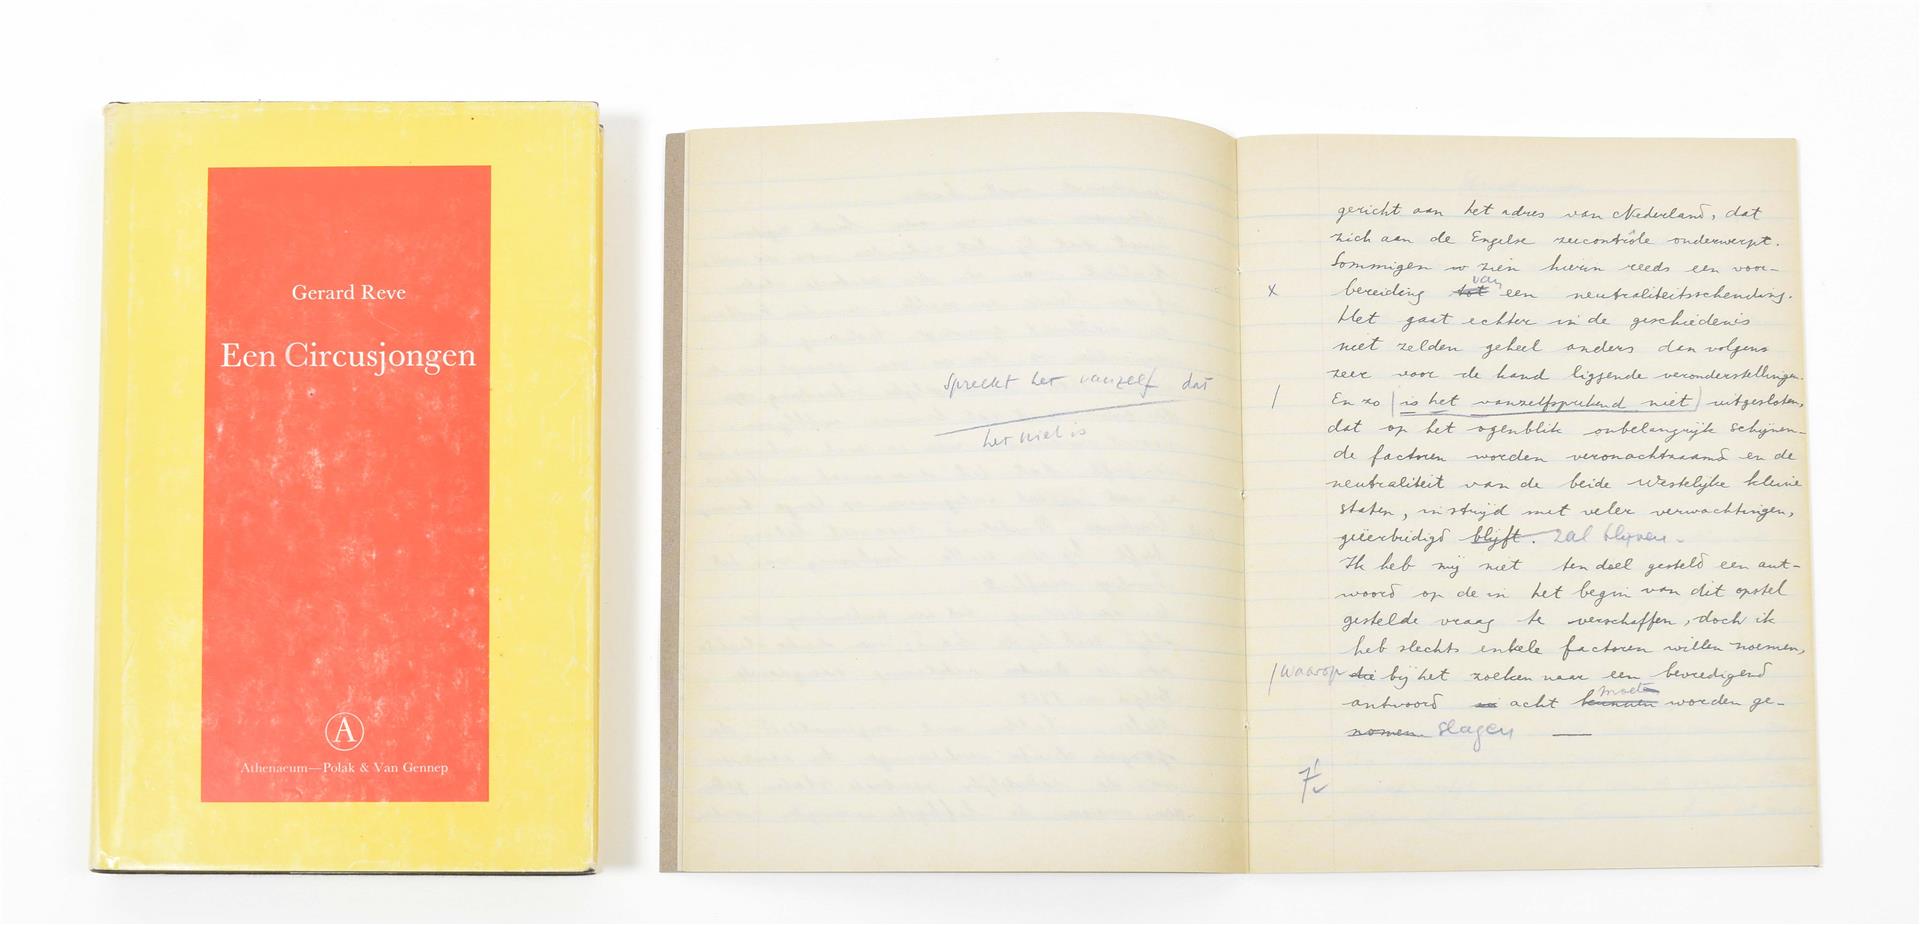 Gerard Reve
Een Circusjongen
A
Athenaeum—Polak & Van Gennep
Spreekt het vanzelf dat
het niet is
gericht aan het adres van Nederland, dat
zich aan de Engelse zeecontrôle onderwerpt.
Sommigen w zien hierin reeds een voor-
van
x bereiding tot een neutraliteitsschending.
Het gaat echter in de geschiedenis
niet zelden geheel anders dan volgens
zeer voor de hand liggende veronderstellingen.
/ En zo (is het vanzelfsprekend niet) uitgesloten,
dat op het ogenblik onbelangrijk schijnen-
de factoren worden veronachtzaamd en de
neutraliteit van de beide Westelijke kleine
staten, in strijd met veler verwachtingen,
geëerbiedigd blijft. zal blijven.
Ik heb mij niet ten doel gesteld een ant-
woord op de in het begin van dit opstel
gestelde vraag te verschaffen, doch ik
heb slechts enkele factoren willen noemen,
/ waarop die bij het zoeken naar een bevredigend
moet
antwoord in acht kunnen worden ge-
nomen slagen —
7